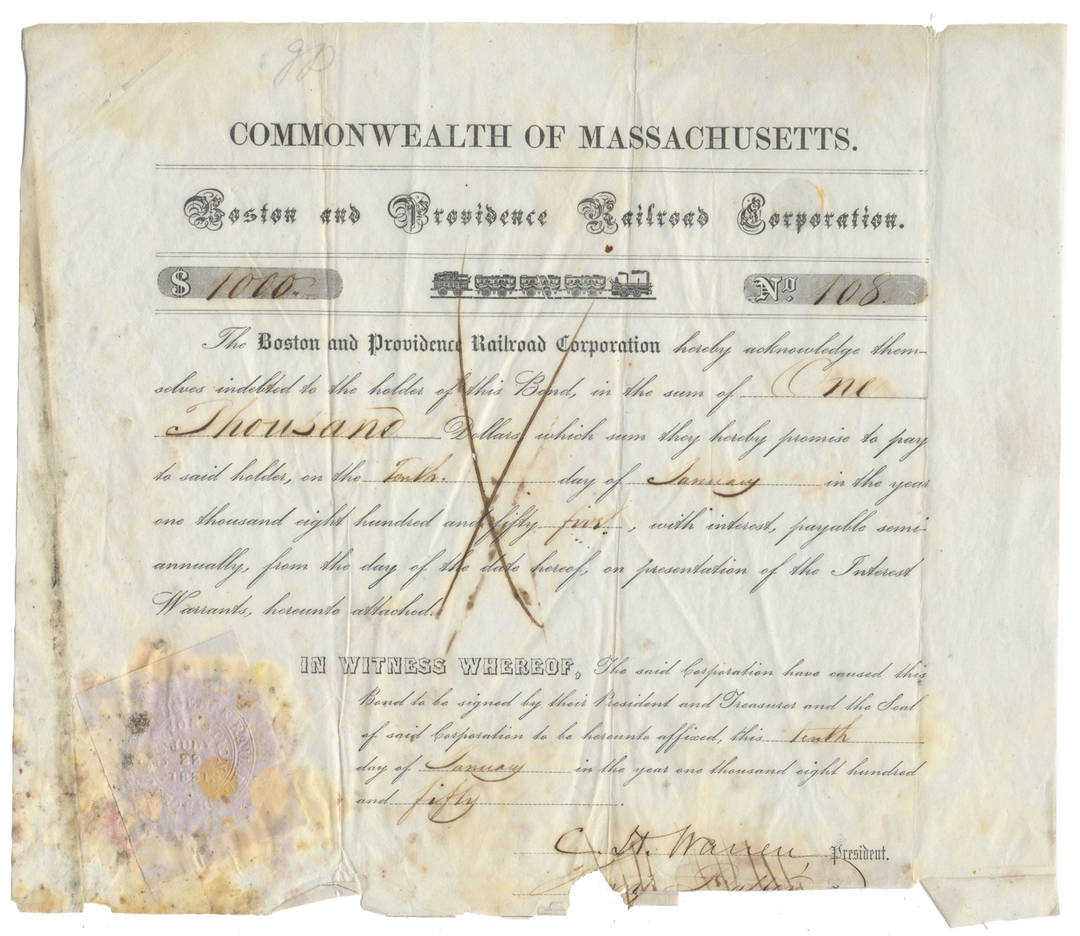 gp
COMMONWEALTH OF MASSACHUSETTS.
Boston and Providence Railroad Corporation.
$ 1000. No. 108.
The Boston and Providence Railroad Corporation hereby acknowledge them-
selves indebted to the holder of this Bond, in the sum of One
Thousand Dollars, which sum they hereby promise to pay
to said holder, on the Tenth day of January in the year
one thousand eight hundred and fifty five, with interest, payable semi-
annually, from the day of the date hereof, on presentation of the Interest
Warrants, hereunto attached.
IN WITNESS WHEREOF, The said Corporation have caused this
Bond to be signed by their President and Treasurer and the Seal
of said Corporation to be hereunto affixed, this tenth
day of January in the year one thousand eight hundred
and fifty.
C. H. Warren, President.
JULY